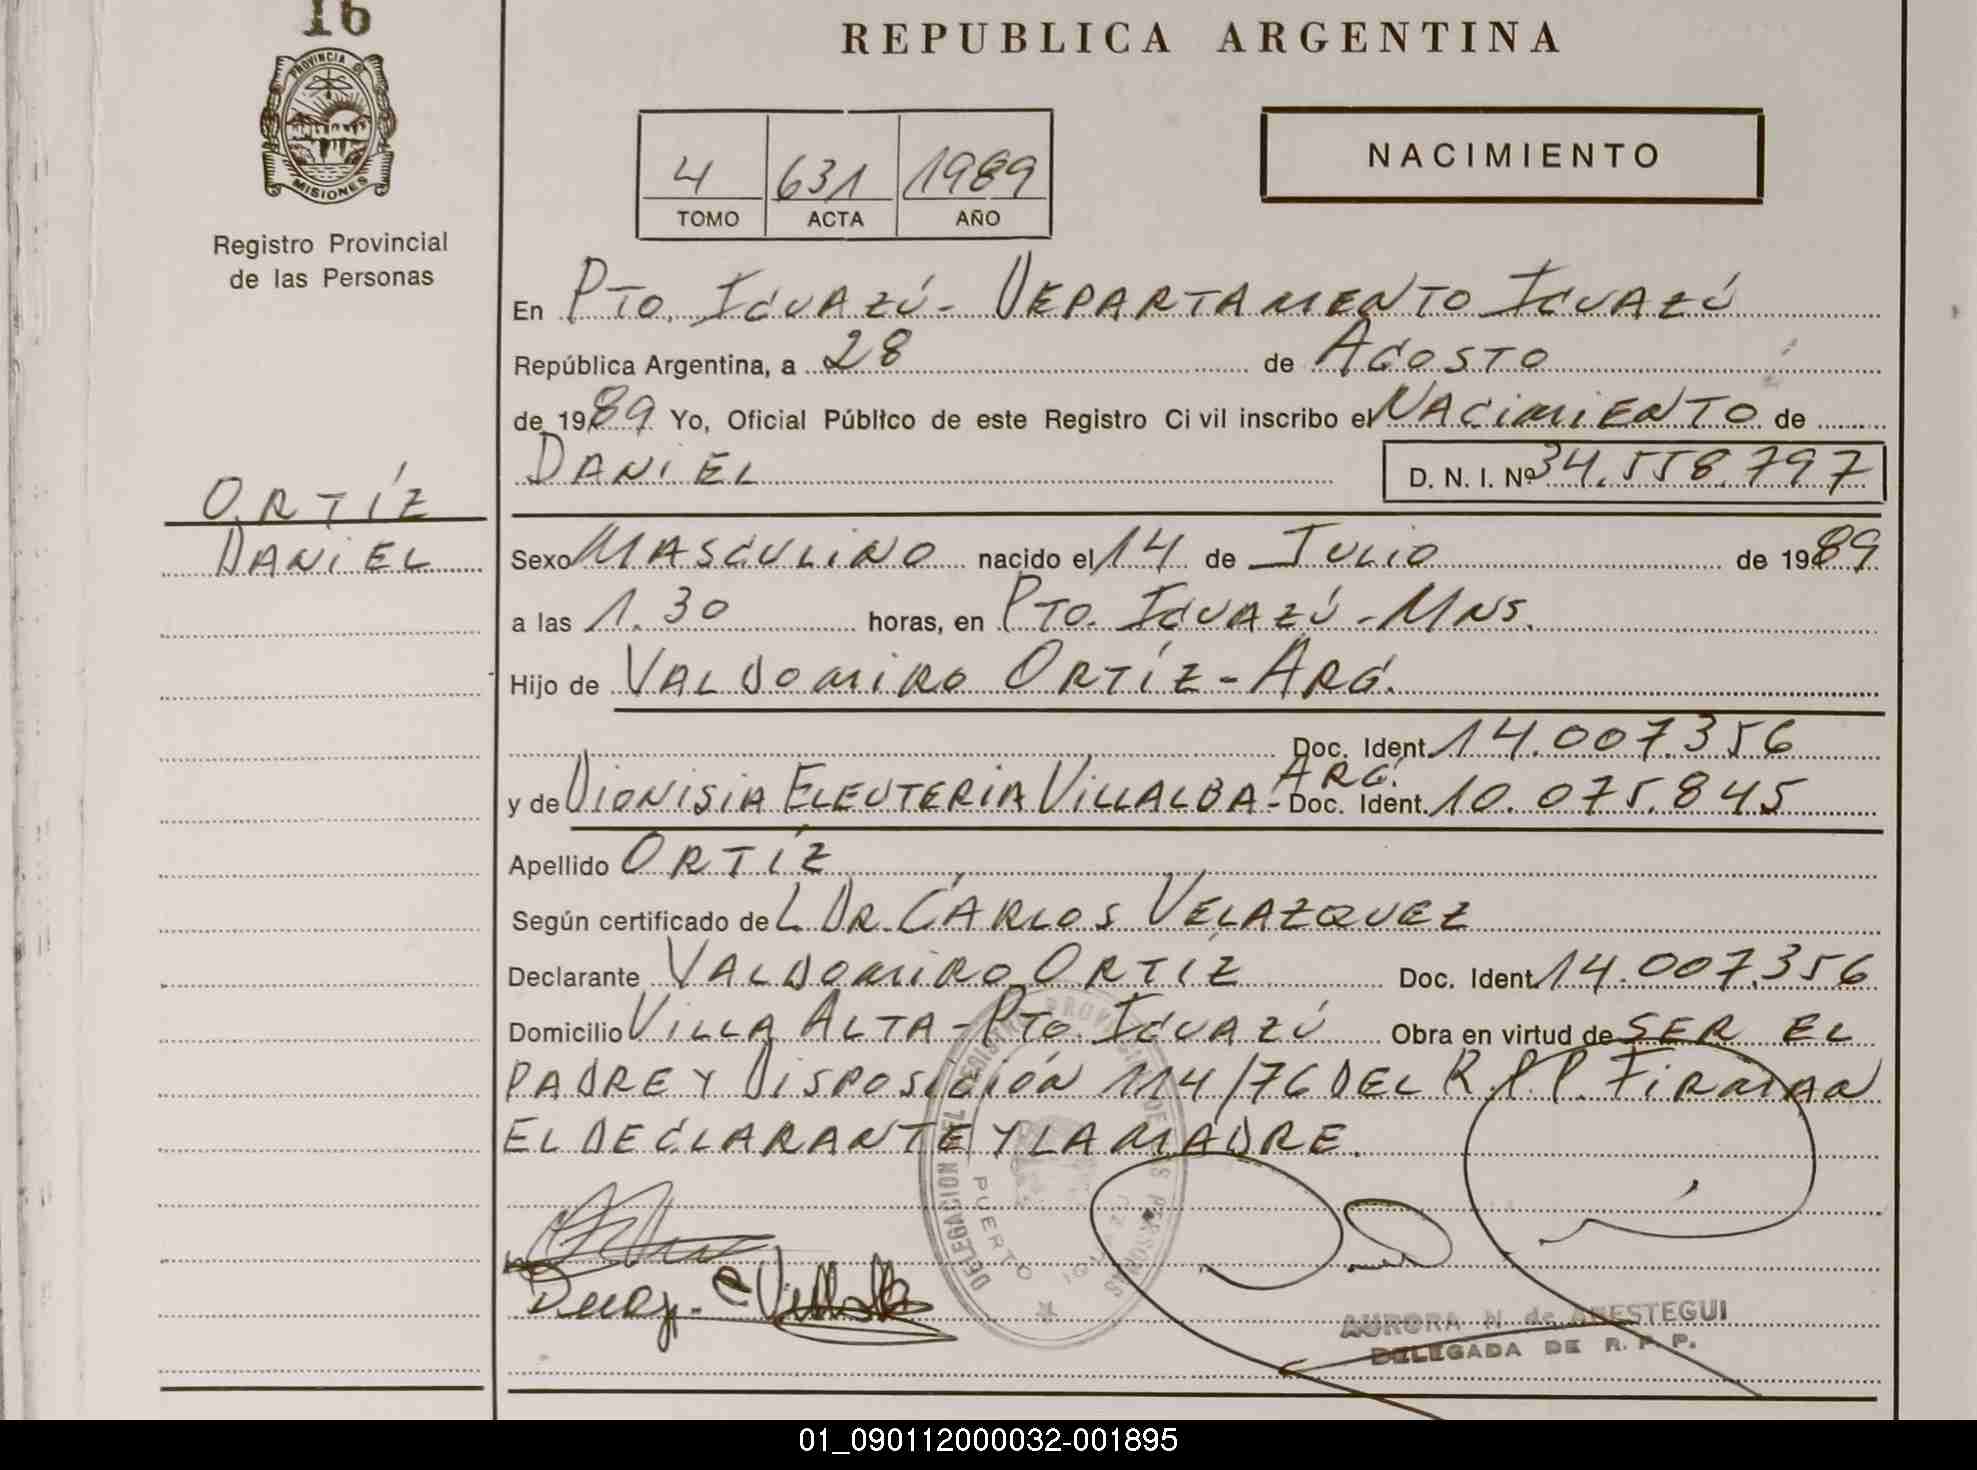 16
REPUBLICA ARGENTINA
PROVINCIA DE
MISIONES
Registro Provincial
de las Personas
4 631 1989
TOMO ACTA AÑO
NACIMIENTO
En PTO. IGUAZÚ - DEPARTAMENTO IGUAZÚ
República Argentina, a 28 de AGOSTO
de 1989 Yo, Oficial Público de este Registro Civil inscribo el NACIMIENTO de
DANIEL D. N. I. Nº 34.558.797
ORTÍZ
DANIEL
Sexo MASCULINO nacido el 14 de JULIO de 1989
a las 1.30 horas, en PTO. IGUAZÚ - MNS.
Hijo de VALDOMIRO ORTÍZ - ARG.
Doc. Ident. 14.007.356
y de DIONISIA ELEUTERIA VILLALBA - ARG. Doc. Ident. 10.075.845
Apellido ORTÍZ
Según certificado de L DR. CARLOS VELAZQUEZ
Declarante VALDOMIRO ORTÍZ Doc. Ident. 14.007.356
Domicilio VILLA ALTA - PTO. IGUAZÚ Obra en virtud de SER EL
PADRE Y DISPOSICIÓN 114/76 DEL R.P.P. FIRMAN
EL DECLARANTE Y LA MADRE.
DELEGACION DEL REGISTRO PROVINCIAL DE LAS PERSONAS
PUERTO IGUAZU
AURORA N. de ARESTEGUI
DELEGADA DE R. P. P.
01_090112000032-001895